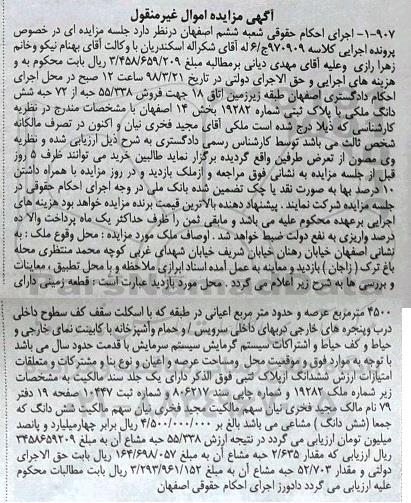 آگهی مزایده اموال غیرمنقول
۱-۹۰۷- اجرای احکام حقوقی شعبه ششم اصفهان درنظر دارد جلسه مزایده ای در خصوص
پرونده اجرایی کلاسه ۹۷۰۹۰۹ج/۶ له آقای شکراله اسکندریان با وکالت آقای بهنام نیکو وخانم
زهرا رازی وعلیه آقای مهدی دیانی برمطالبه مبلغ ۳/۴۵۸/۶۵۹/۲۰۹ ریال بابت محکوم به و
هزینه های اجرایی و حق الاجرای دولتی در تاریخ ۹۸/۳/۲۱ ساعت ۱۲ صبح در محل اجرای
احکام دادگستری اصفهان طبقه زیرزمین اتاق ۱۸ جهت فروش ۵۵/۳۳۸ حبه از ۷۲ حبه شش
دانگ ملکی با پلاک ثبتی شماره ۱۹۲۸۲ بخش ۱۴ اصفهان با مشخصات مندرج در نظریه
کارشناسی که ذیلا درج شده است ملکی آقای مجید فخری نیان و اکنون در تصرف مالکانه
شخص ثالث می باشد توسط کارشناس رسمی دادگستری به شرح ذیل ارزیابی شده و نظریه
وی مصون از تعرض طرفین واقع گردیده برگزار نماید طالبین خرید می توانند ظرف ۵ روز
قبل از جلسه مزایده به نشانی فوق مراجعه و ازملک بازدید و در روز مزایده با همراه داشتن
۱۰ درصد بها به صورت نقد یا چک تضمین شده بانک ملی در وجه اجرای احکام حقوقی در
جلسه مزایده شرکت نمایند . پیشنهاد دهنده بالاترین قیمت برنده مزایده خواهد بود هزینه های
اجرایی برعهده محکوم علیه می باشد و مابقی ثمن را ظرف حداکثر یک ماه پرداخت والا ده
درصد واریزی به نفع دولت ضبط خواهد شد . اوصاف ملک مورد مزایده : محل وقوع ملک : به
نشانی اصفهان خیابان رهنان خیابان شریف خیابان شهدای غربی کوچه محمد منتظری محله
باغ ترک ( زاجان ) بازدید و معاینه به عمل آمده اسناد ابرازی ملاحظه و با محل تطبیق ، معاینات
و بررسی ها به شرح زیر اعلام می گردد . محل مورد بازدید عبارت است : قطعه زمینی دارای
۴۵۰۰ مترمربع عرصه و حدود متر مربع اعیانی در طبقه که با اسکلت سقف کف سطوح داخلی
درب وپنجره های خارجی دربهای داخلی سرویس / و حمام وآشپزخانه با کابینت نمای خارجی و
حیاط و کف حیاط و اشتراکات سیستم گرمایش سیستم سرمایش با قدمت حدود سال می باشد
با توجه به موارد فوق و موقعیت محل ومساحت عرصه و اعیان و نوع بنا و مشترکات و متعلقات
امتیازات ارزش ششدانگ ازپلاک ثبتی فوق الذکر دارای یک جلد سند مالکیت به مشخصات
زیر شماره ملک ۱۹۲۸۲ و شماره چاپی سند ۸۰۶۲۱۷ و شماره ثبت ۲۰۴۴۷ و صفحه ۱۹ دفتر
۷۹ نام مالک مجید فخری نیان سهم مالکیت مجید فخری نیان سهم مالکیت شش دانگ که
جمعا (شش دانگ ) مشاعی می باشد بالغ بر ۴/۵۰۰/۰۰۰/۰۰۰ ریال برابر چهارمیلیارد و پانصد
میلیون تومان ارزیابی می گردد در نتیجه ارزش ۵۵/۳۳۸ حبه مشاع آن به مبلغ ۳۴۵۸۶۵۹۲۰۹
ریال ارزیابی می گردد که مقدار ۲/۶۳۵ حبه مشاع آن به مبلغ ۱۶۴/۶۹۸/۰۵۷ ریال بابت حق الاجرای
دولتی و مقدار ۵۲/۷۰۳ حبه مشاع آن به مبلغ ۳/۲۹۳/۹۶۱/۱۵۲ ریال بابت مطالبات محکوم
علیه ارزیابی می گردد دادورز اجرای احکام حقوقی اصفهان